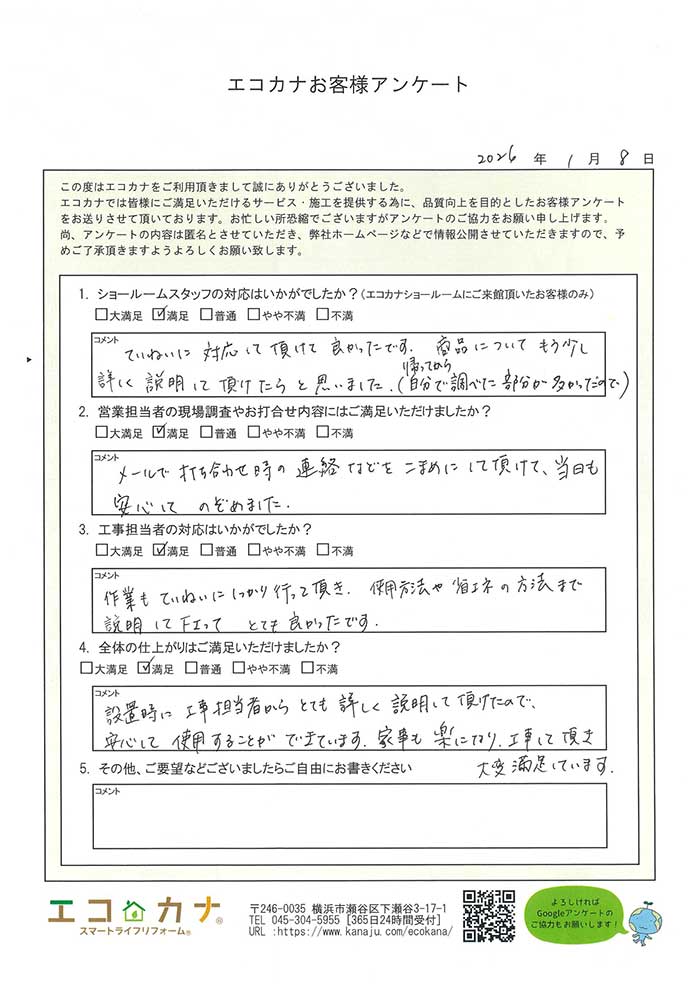 エコカナお客様アンケート
2026 年 1 月 8 日
この度はエコカナをご利用頂きまして誠にありがとうございました。
エコカナでは皆様にご満足いただけるサービス・施工を提供する為に、品質向上を目的としたお客様アンケート
をお送りさせて頂いております。お忙しい所恐縮でございますがアンケートのご協力をお願い申し上げます。
尚、アンケートの内容は匿名とさせていただき、弊社ホームページなどで情報公開させていただきますので、予
めご了承頂きますようよろしくお願い致します。
1. ショールームスタッフの対応はいかがでしたか？(エコカナショールームにご来館頂いたお客様のみ)
□大満足 ☑満足 □普通 □やや不満 □不満
コメント
ていねいに対応して頂けて良かったです。商品についてもう少し
帰ってから
詳しく説明して頂けたらと思いました。(自分で調べた部分が多かったので)
2. 営業担当者の現場調査やお打合せ内容にはご満足いただけましたか？
□大満足 ☑満足 □普通 □やや不満 □不満
コメント
メールで打ち合わせ時の連絡などをこまめにして頂けて、当日も
安心してのぞめました。
3. 工事担当者の対応はいかがでしたか？
□大満足 ☑満足 □普通 □やや不満 □不満
コメント
作業もていねいにしっかり行って頂き、使用方法や省エネの方法まで
説明して下さってとても良かったです。
4. 全体の仕上がりはご満足いただけましたか？
□大満足 ☑満足 □普通 □やや不満 □不満
コメント
設置時に工事担当者からとても詳しく説明して頂けたので、
安心して使用することができています。家事も楽になり、工事して頂き
大変満足しています。
5. その他、ご要望などございましたらご自由にお書きください
コメント
エコカナ®
スマートライフリフォーム®
〒246-0035 横浜市瀬谷区下瀬谷3-17-1
TEL 045-304-5955 [365日24時間受付]
URL :https://www.kanaju.com/ecokana/
よろしければ
Googleアンケートの
ご協力もお願いします！